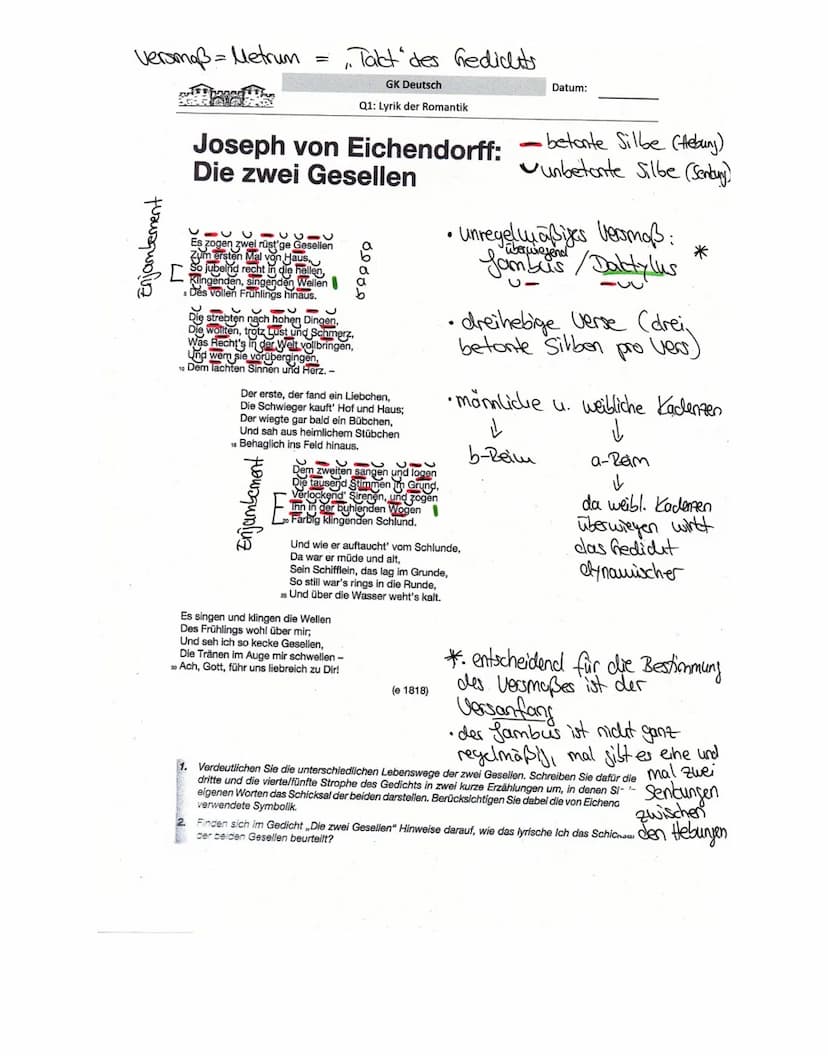 Versmaß = Metrum = „Takt“ des Gedichts
GK Deutsch
Datum:
Q1: Lyrik der Romantik
Joseph von Eichendorff:
Die zwei Gesellen
betonte Silbe (Hebung)
unbetonte Silbe (Senkung)
Enjambement
Es zogen zwei rüst'ge Gesellen
Zum ersten Mal von Haus,
So jubelnd recht in die hellen,
Klingenden, singenden Wellen
5 Des vollen Frühlings hinaus.
a
b
a
a
b
• unregelmäßiges Versmaß:
überwiegend
Jambus / Daktylus *
Die strebten nach hohen Dingen,
Die wollten, trotz Lust und Schmerz,
Was Recht's in der Welt vollbringen,
Und wem sie vorübergingen,
10 Dem lachten Sinnen und Herz. –
• dreihebige Verse (drei
betonte Silben pro Vers)
Der erste, der fand ein Liebchen,
Die Schwieger kauft' Hof und Haus;
Der wiegte gar bald ein Bübchen,
Und sah aus heimlichem Stübchen
15 Behaglich ins Feld hinaus.
• männliche u. weibliche Kadenzen
↓ ↓
b-Reim a-Reim
↓
da weibl. Kadenzen
überwiegen wirkt
das Gedicht
dynamischer
Enjambement
Dem zweiten sangen und logen
Die tausend Stimmen im Grund,
Verlockend' Sirenen, und zogen
Ihn in der buhlenden Wogen
20 Farbig klingenden Schlund.
Und wie er auftaucht' vom Schlunde,
Da war er müde und alt,
Sein Schifflein, das lag im Grunde,
So still war's rings in die Runde,
25 Und über die Wasser weht's kalt.
Es singen und klingen die Wellen
Des Frühlings wohl über mir;
Und seh ich so kecke Gesellen,
Die Tränen im Auge mir schwellen –
30 Ach, Gott, führ uns liebreich zu Dir!
(e 1818)
*. entscheidend für die Bestimmung
des Versmaßes ist der
Versanfang
• der Jambus ist nicht ganz
regelmäßig, mal gibt es eine und
mal zwei
Senkungen
zwischen
den Hebungen
1. Verdeutlichen Sie die unterschiedlichen Lebenswege der zwei Gesellen. Schreiben Sie dafür die
dritte und die vierte/fünfte Strophe des Gedichts in zwei kurze Erzählungen um, in denen Si
eigenen Worten das Schicksal der beiden darstellen. Berücksichtigen Sie dabei die von Eichend
verwendete Symbolik.
2. Finden sich im Gedicht „Die zwei Gesellen“ Hinweise darauf, wie das lyrische Ich das Schic
der beiden Gesellen beurteilt?